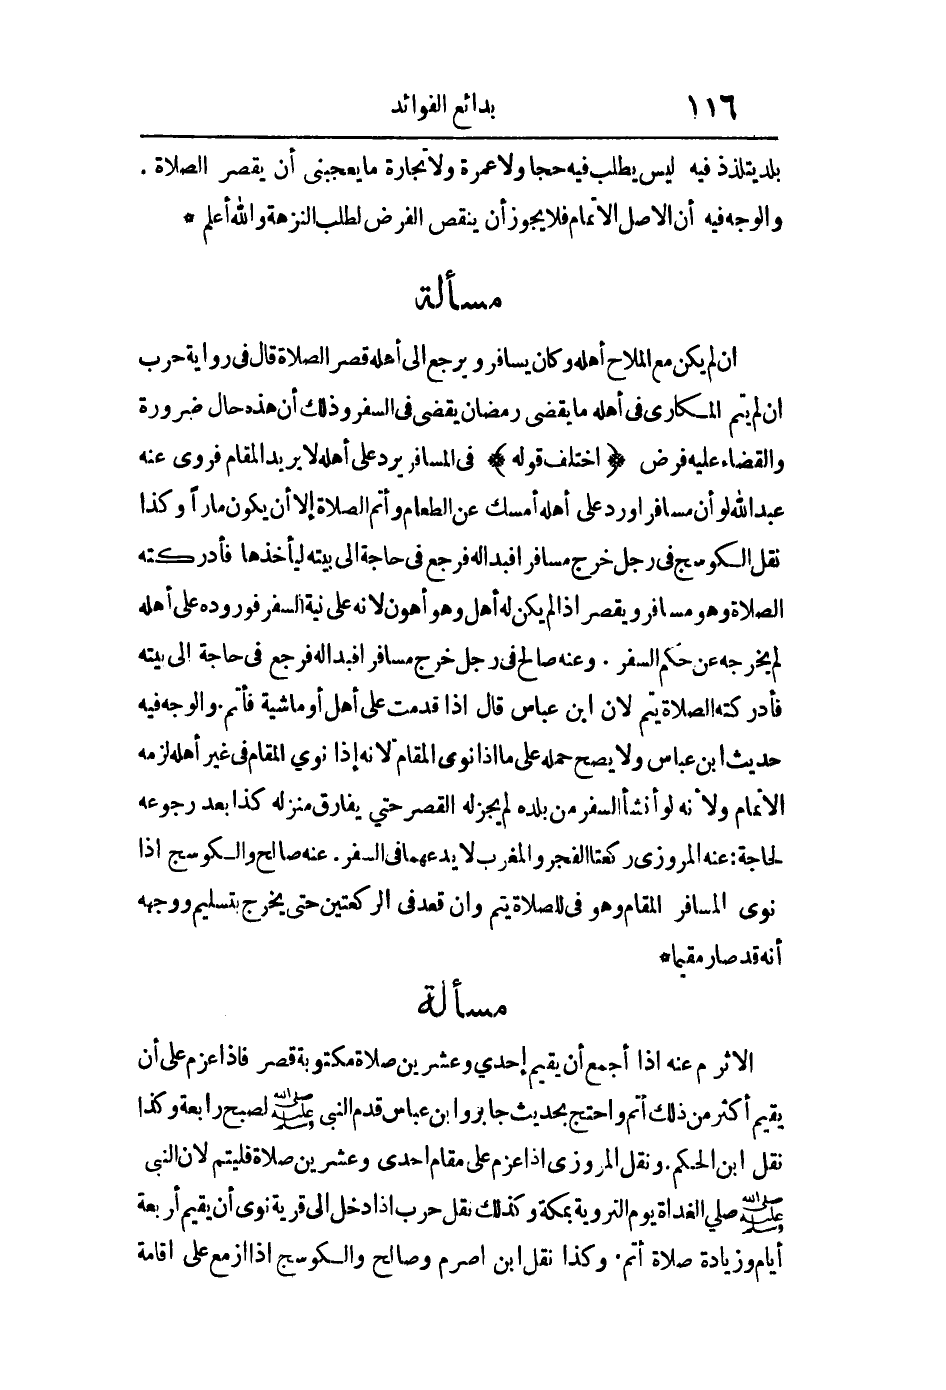 ١١٦ بدائع الفوائد
بلد يتلذذ فيه ليس يطلب فيه حجا ولا عمرة ولا تجارة ما يعجبنى أن يقصر الصلاة .
والوجه فيه أن الاصل الاتمام فلا يجوز أن ينقص الفرض لطلب النزهة والله أعلم *
مسألة
ان لم يكن مع الملاح أهله وكان يسافر و يرجع الى أهله قصر الصلاة قال فى رواية حرب
ان لم يتم المكارى فى أهله ما يقضى رمضان يقضى فى السفر وذلك أن هذه حال ضرورة
والقضاء عليه فرض ﴿ اختلف قوله ﴾ فى المسافر يرد على أهله لا يريد المقام فروى عنه
عبد الله لو أن مسافرا ورد على أهله أمسك عن الطعام وأتم الصلاة إلا أن يكون ماراً وكذا
نقل الكوسج فى رجل خرج مسافرا فبداله فرجع فى حاجة الى بيته ليأخذها فأدركته
الصلاة وهو مسافر و يقصر اذا لم يكن له أهل وهو أهون لانه على نية السفر فوروده على أهله
لم يخرجه عن حكم السفر . وعنه صالح فى رجل خرج مسافرا فبداله فرجع فى حاجة الى بيته
فأدركته الصلاة يتم لان ابن عباس قال اذا قدمت على أهل أو ماشية فأتم . والوجه فيه
حديث ابن عباس ولا يصح حمله على ما اذا نوى المقام لانه إذا نوي المقام فى غير أهله لزمه
الاتمام ولأنه لو أنشأ السفر من بلده لم يجز له القصر حتي يفارق منزله كذا بعد رجوعه
لحاجة : عنه المروزى ركعتا الفجر والمغرب لا يدعهما فى السفر . عنه صالح والكوسج اذا
نوى المسافر المقام وهو فى للصلاة يتم وان قعد فى الركعتين حتى يخرج بتسليم ووجهه
أنه قد صار مقيما *
مسألة
الاثرم عنه اذا أجمع أن يقيم إحدي وعشرين صلاة مكتوبة قصر فاذا عزم على أن
يقيم أكثر من ذلك أتم واحتج بحديث جابر وابن عباس قدم النبى ﷺ لصبح رابعة وكذا
نقل ابن الحكم . ونقل المروزى اذا عزم على مقام احدى وعشرين صلاة فليتم لان النبى
ﷺ صلي الغداة يوم التروية بمكة وكذلك نقل حرب اذا دخل الى قرية نوى أن يقيم أربعة
أيام وزيادة صلاة أتم . وكذا نقل ابن اصرم وصالح والكوسج اذا ازمع على اقامة